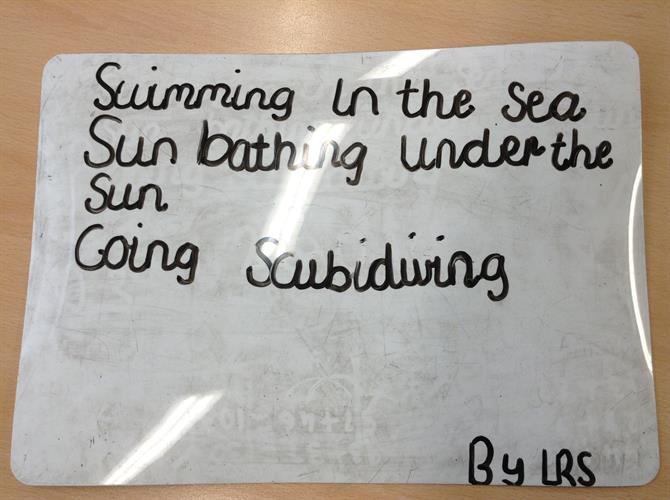 Swimming in the sea
Sun bathing under the
sun
Going Scubidiving
By LRS